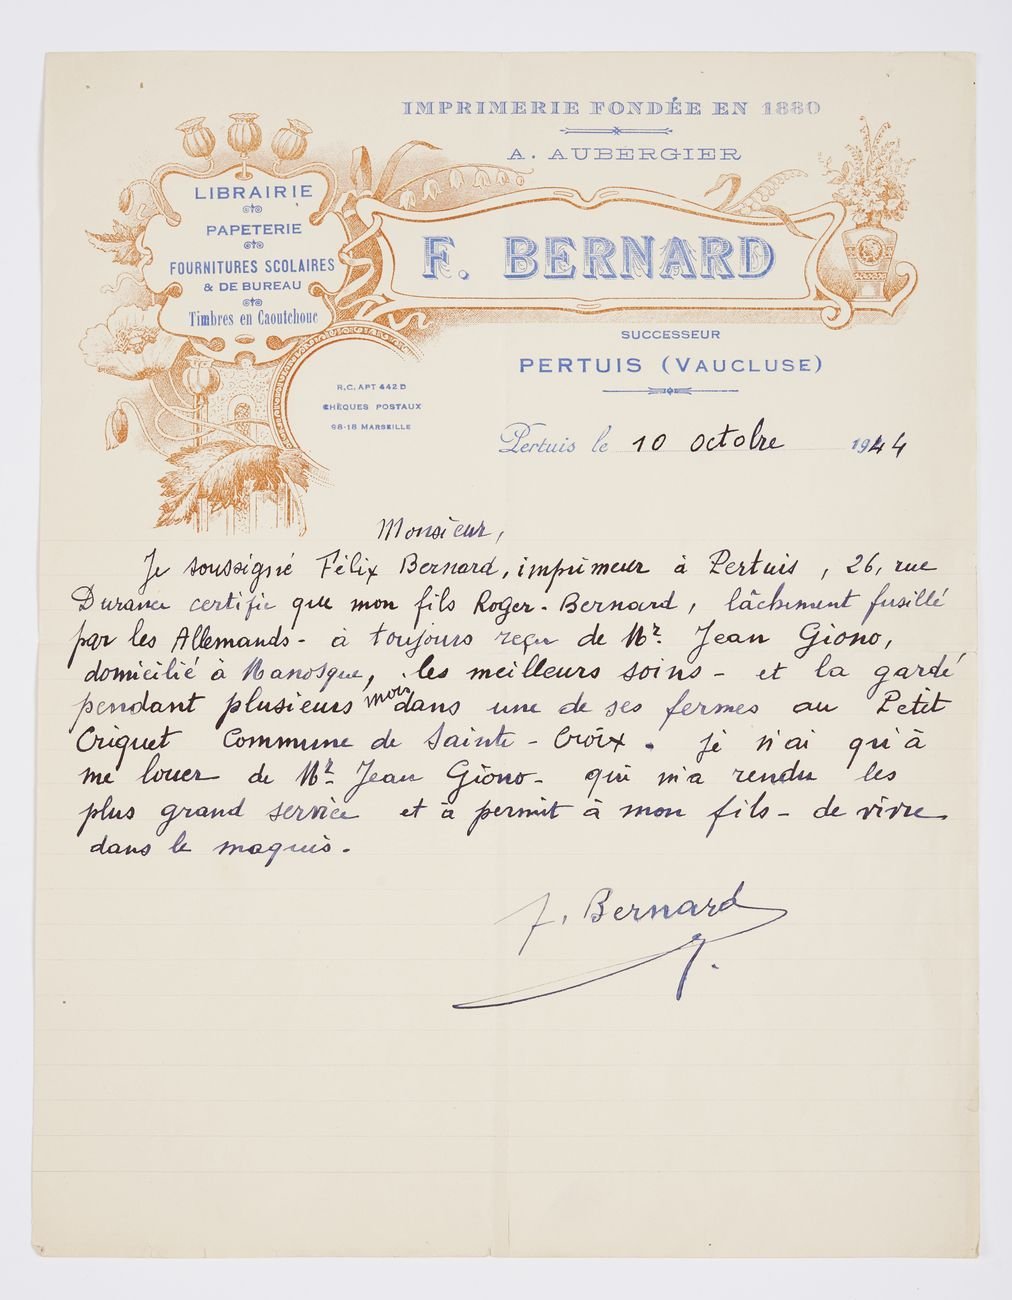 IMPRIMERIE FONDÉE EN 1880
A. AUBERGIER
F. BERNARD
SUCCESSEUR
PERTUIS (VAUCLUSE)
LIBRAIRIE
PAPETERIE
FOURNITURES SCOLAIRES
& DE BUREAU
Timbres en Caoutchouc
R.C. APT 442 D
CHÈQUES POSTAUX
98-18 MARSEILLE
Pertuis le 10 octobre 1944
Monsieur,
Je soussigné Félix Bernard, imprimeur à Pertuis, 26, rue
Durance certifie que mon fils Roger-Bernard, lâchement fusillé
par les Allemands - à toujours reçu de Mr. Jean Giono,
domicilié à Manosque, les meilleurs soins - et la gardé
pendant plusieurs mois dans une de ses fermes au Petit
Criquet Commune de Sainte-Croix. Je n'ai qu'à
me louer de Mr. Jean Giono - qui m'a rendu les
plus grand service et à permit à mon fils - de vivre
dans le maquis.
F. Bernard